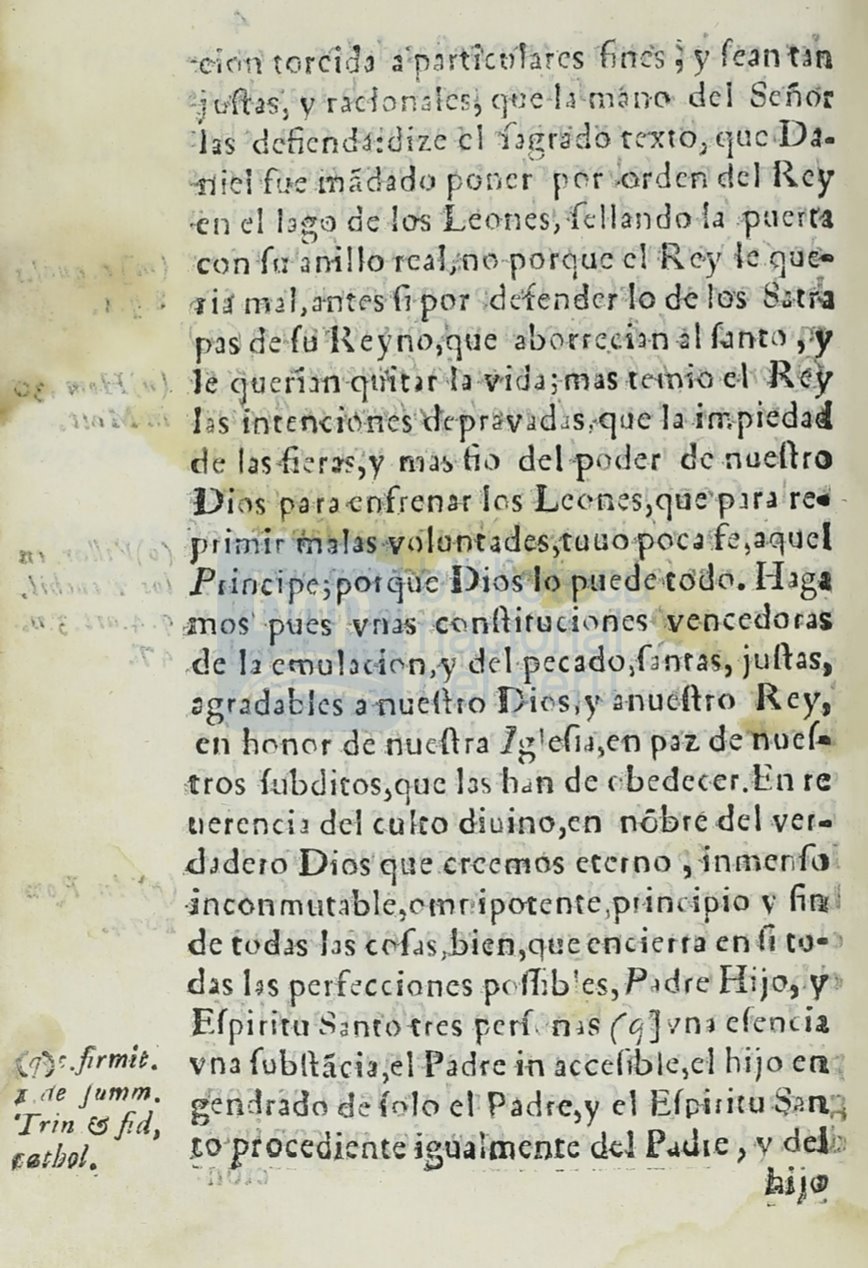 cion torcida a particulares fines; y ſean tan
juſtas, y racionales, que la mano del Señor
las defienda: dize el ſagrado texto, que Da-
niel fue mãdado poner por orden del Rey
en el lago de los Leones, ſellando la puerta
con ſu anillo real, no porque el Rey le que-
ria mal, antes ſi por defenderlo de los Satra
pas de ſu Reyno, que aborrecian al ſanto, y
le querian quitar la vida; mas temio el Rey
las intenciones depravadas, que la impiedad
de las fieras, y mas fio del poder de nueſtro
Dios para enfrenar los Leones, que para re-
primir malas voluntades, tuuo poca fe, aquel
Principe; porque Dios lo puede todo. Haga
mos pues vnas conſtituciones vencedoras
de la emulacion, y del pecado, ſantas, juſtas,
agradables a nueſtro Dios, y anueſtro Rey,
en honor de nueſtra Igleſia, en paz de nueſ-
tros ſubditos, que las han de obedecer. En re
uerencia del culto diuino, en nõbre del ver-
dadero Dios que creemos eterno, inmenſo
inconmutable, omnipotente, principio y fin
de todas las coſas, bien, que encierra en ſi to-
das las perfecciones poſſibles, Padre Hijo, y
Eſpiritu Santo tres perſonas (q] vna eſencia
vna ſubſtãcia, el Padre in acceſible, el hijo en
gendrado de ſolo el Padre, y el Eſpiritu San
to procediente igualmente del Padre, y del
hijo
(q) c. firmit.
1 de ſumm.
Trin & fid,
cathol.